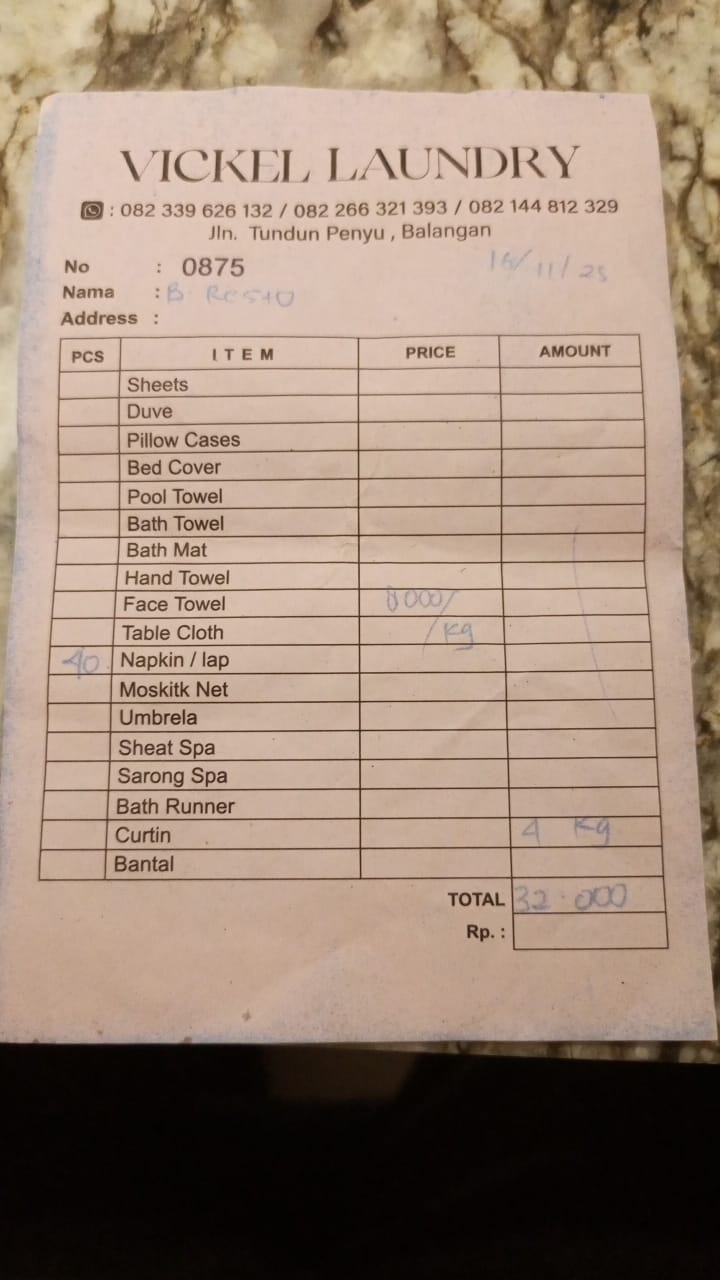 VICKEL LAUNDRY
: 082 339 626 132 / 082 266 321 393 / 082 144 812 329
Jln. Tundun Penyu , Balangan
No : 0875
16/11/25
Nama : B. Resto
Address :
PCS ITEM PRICE AMOUNT
Sheets
Duve
Pillow Cases
Bed Cover
Pool Towel
Bath Towel
Bath Mat
Hand Towel
Face Towel 8000/
Table Cloth /kg
40 Napkin / lap
Moskitk Net
Umbrela
Sheat Spa
Sarong Spa
Bath Runner
Curtin 4 Kg
Bantal
TOTAL 32.000
Rp. :